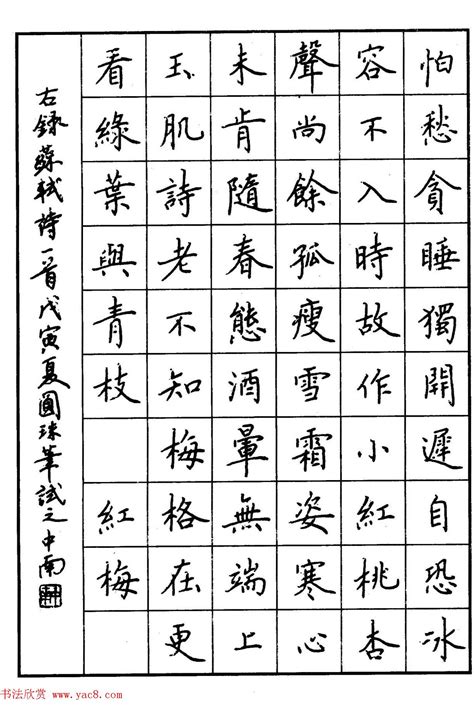 怕愁貪睡獨開遲自恐冰
容不入時故作小紅桃杏
聲尚餘孤瘦雪霜姿寒心
未肯隨春態酒暈無端上
玉肌詩老不知梅格在更
看綠葉與青枝 紅梅
右錄蘇軾詩一首戊寅夏圓珠筆試之中南
书法欣赏 www.yac8.com